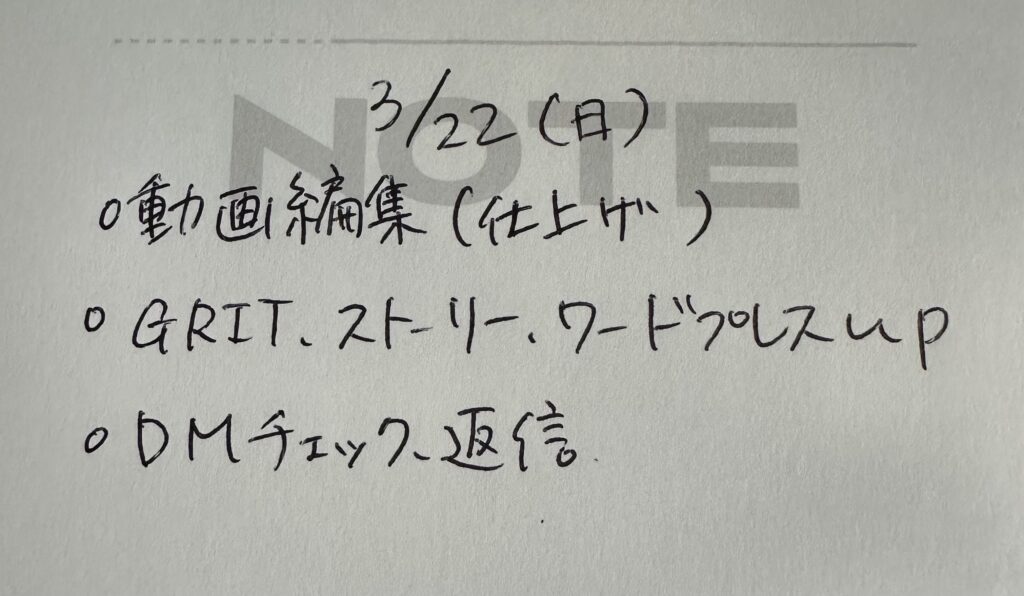 NOTE
3/22(日)
○動画編集(仕上げ)
○GRIT、ストーリー、ワードプレスup
○DMチェック、返信